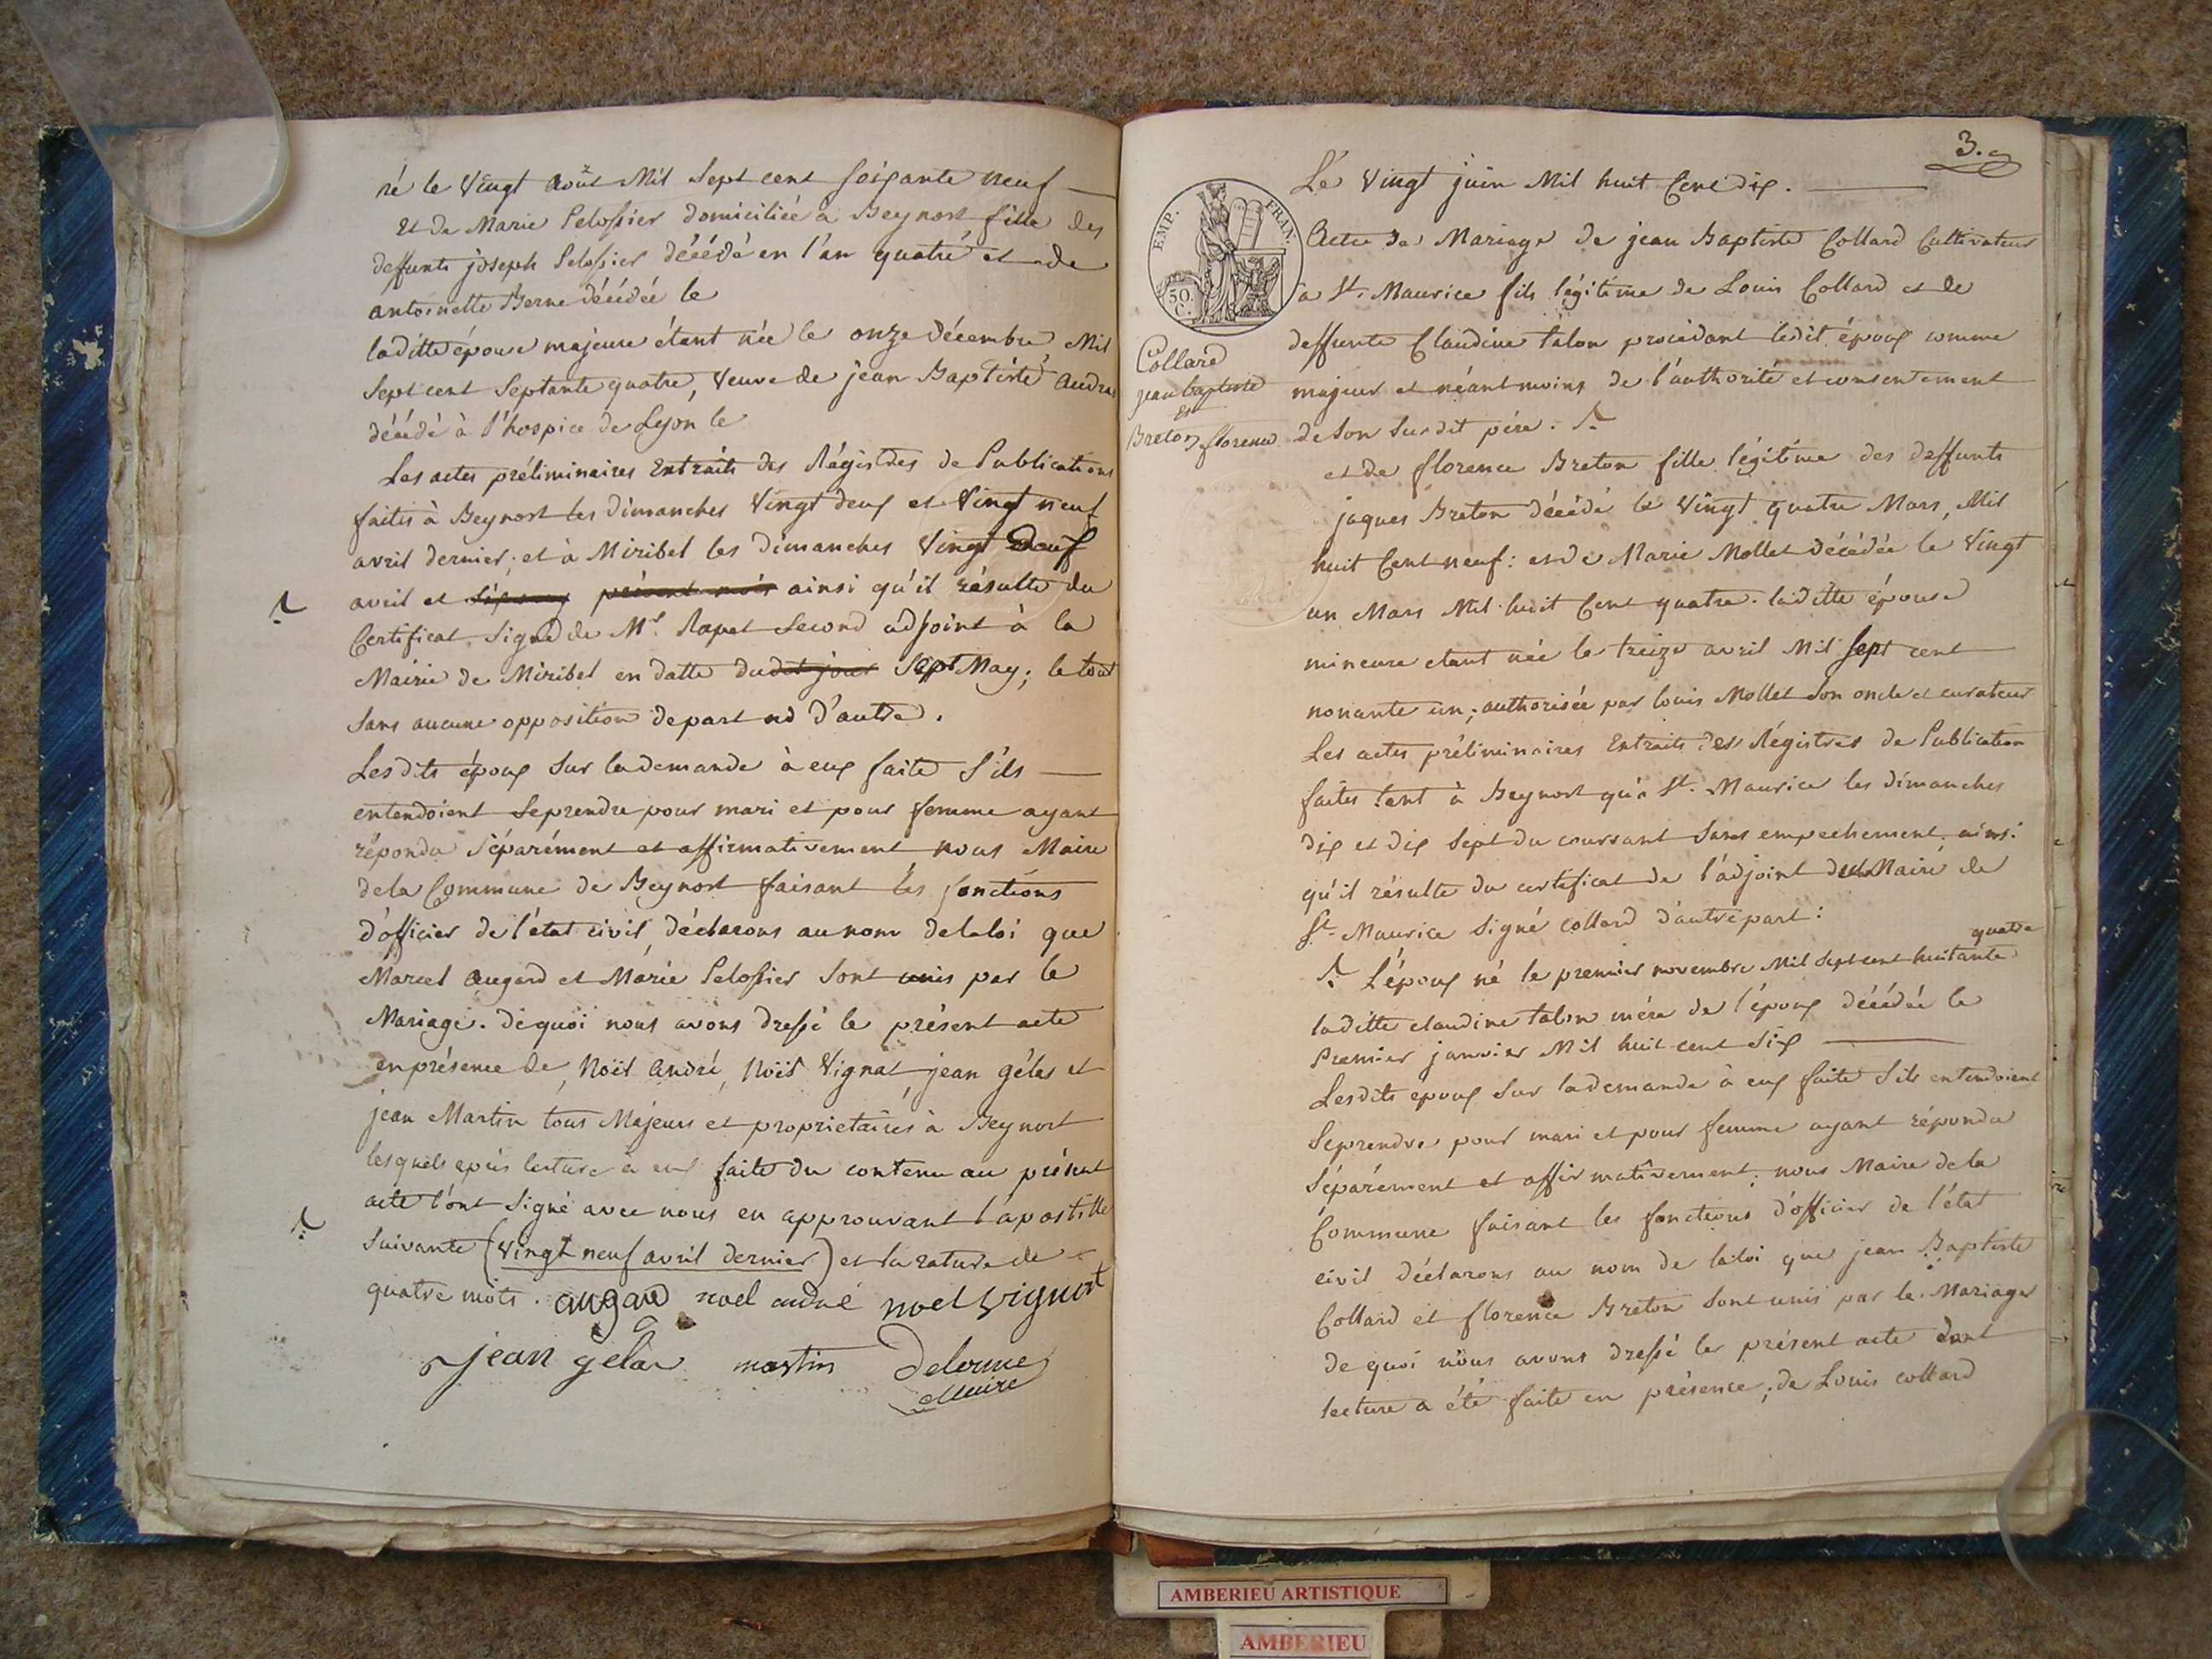 né le Vingt Août Mil Sept cent soixante neuf
Et de Marie Pelossier domiciliée à Beynost fille des
deffunts joseph Pelossier décédé en l'an quatre et de
antoinette Berne décédée le
laditte épouse majeure étant née le onze décembre Mil
Sept cent Septante quatre, Veuve de jean Baptiste
décédé à l'hospice de Lyon le
Les actes préliminaires Extraits des Régistres de Publications
faites à Beynost les dimanches Vingt deux et Vingt neuf
avril dernier; et à Miribel les dimanches Vingt deux
avril et présent mois ainsi qu'il résulte du
Certificat Signé de Mr. Rapet Second adjoint à la
Mairie de Miribel en datte dudit jour Sept May; le tout
Sans aucune opposition de part nd d'autre.
Lesdits époux Sur la demande à eux faite S'ils
entendoient Se prendre pour mari et pour femme ayant
répondu Séparément et affirmativement nous Maire
de la Commune de Beynost faisant les fonctions
d'officier de l'état civil, déclarons au nom de la loi que
Marcel Augard et Marie Pelossier Sont unis par le
Mariage. de quoi nous avons dressé le présent acte
en présence de, Noël André, Noël Vignat, jean gélas et
jean Martin tous Majeurs et proprietaires à Beynost
lesquels après lecture à eux faite du contenu au présent
acte l'ont Signé avec nous en approuvant l'apostille
Suivante (Vingt neuf avril dernier) et la rature de
quatre mots. augard noel andré noel vignat
jean gelas martin Delorme
Maire
3.
Le Vingt juin Mil huit Cent dix.
EMP. FRAN.
50. C.
Acte de Mariage de jean Baptiste Collard Cultivateur
a St. Maurice fils légitime de Louis Collard et de
deffunte Claudine talon procédant ledit époux comme
majeur et néantmoins de l'authorité et consentement
de Son Susdit père.
Collard
jean baptiste
et
Breton florence
et de florence Breton fille légitime des deffunts
jaques Breton décédé le Vingt quatre Mars, Mil
huit Cent neuf: et de Marie Mollet décédée le Vingt
un Mars Mil huit Cent quatre. laditte épouse
mineure etant née le treize avril Mil Sept cent
nonante un; authorisée par louis Mollet Son oncle et curateur
Les actes préliminaires Extraits des Régistres de Publication
faites tant à Beynost qu'à St. Maurice les dimanches
dix et dix Sept du courrant Sans empechement, ainsi
qu'il résulte du certificat de l'adjoint Maire de
St. Maurice Signé collard d'autre part:
quatre
L'époux né le premier novembre Mil Sept cent huitante
laditte claudine talon mére de l'époux décédée le
Premier janvier Mil huit cent Six
Lesdits epoux Sur la demande à eux faite S'ils entendoient
Se prendre pour mari et pour femme ayant répondu
Séparément et affirmativement; nous Maire de la
Commune faisant les fonctions d'officier de l'état
civil Déclarons au nom de la loi que jean Baptiste
Collard et florence Breton Sont unis par le Mariage
de quoi nous avons dressé le présent acte dont
lecture a été faite en présence; de Louis collard
AMBERIEU ARTISTIQUE
AMBERIEU